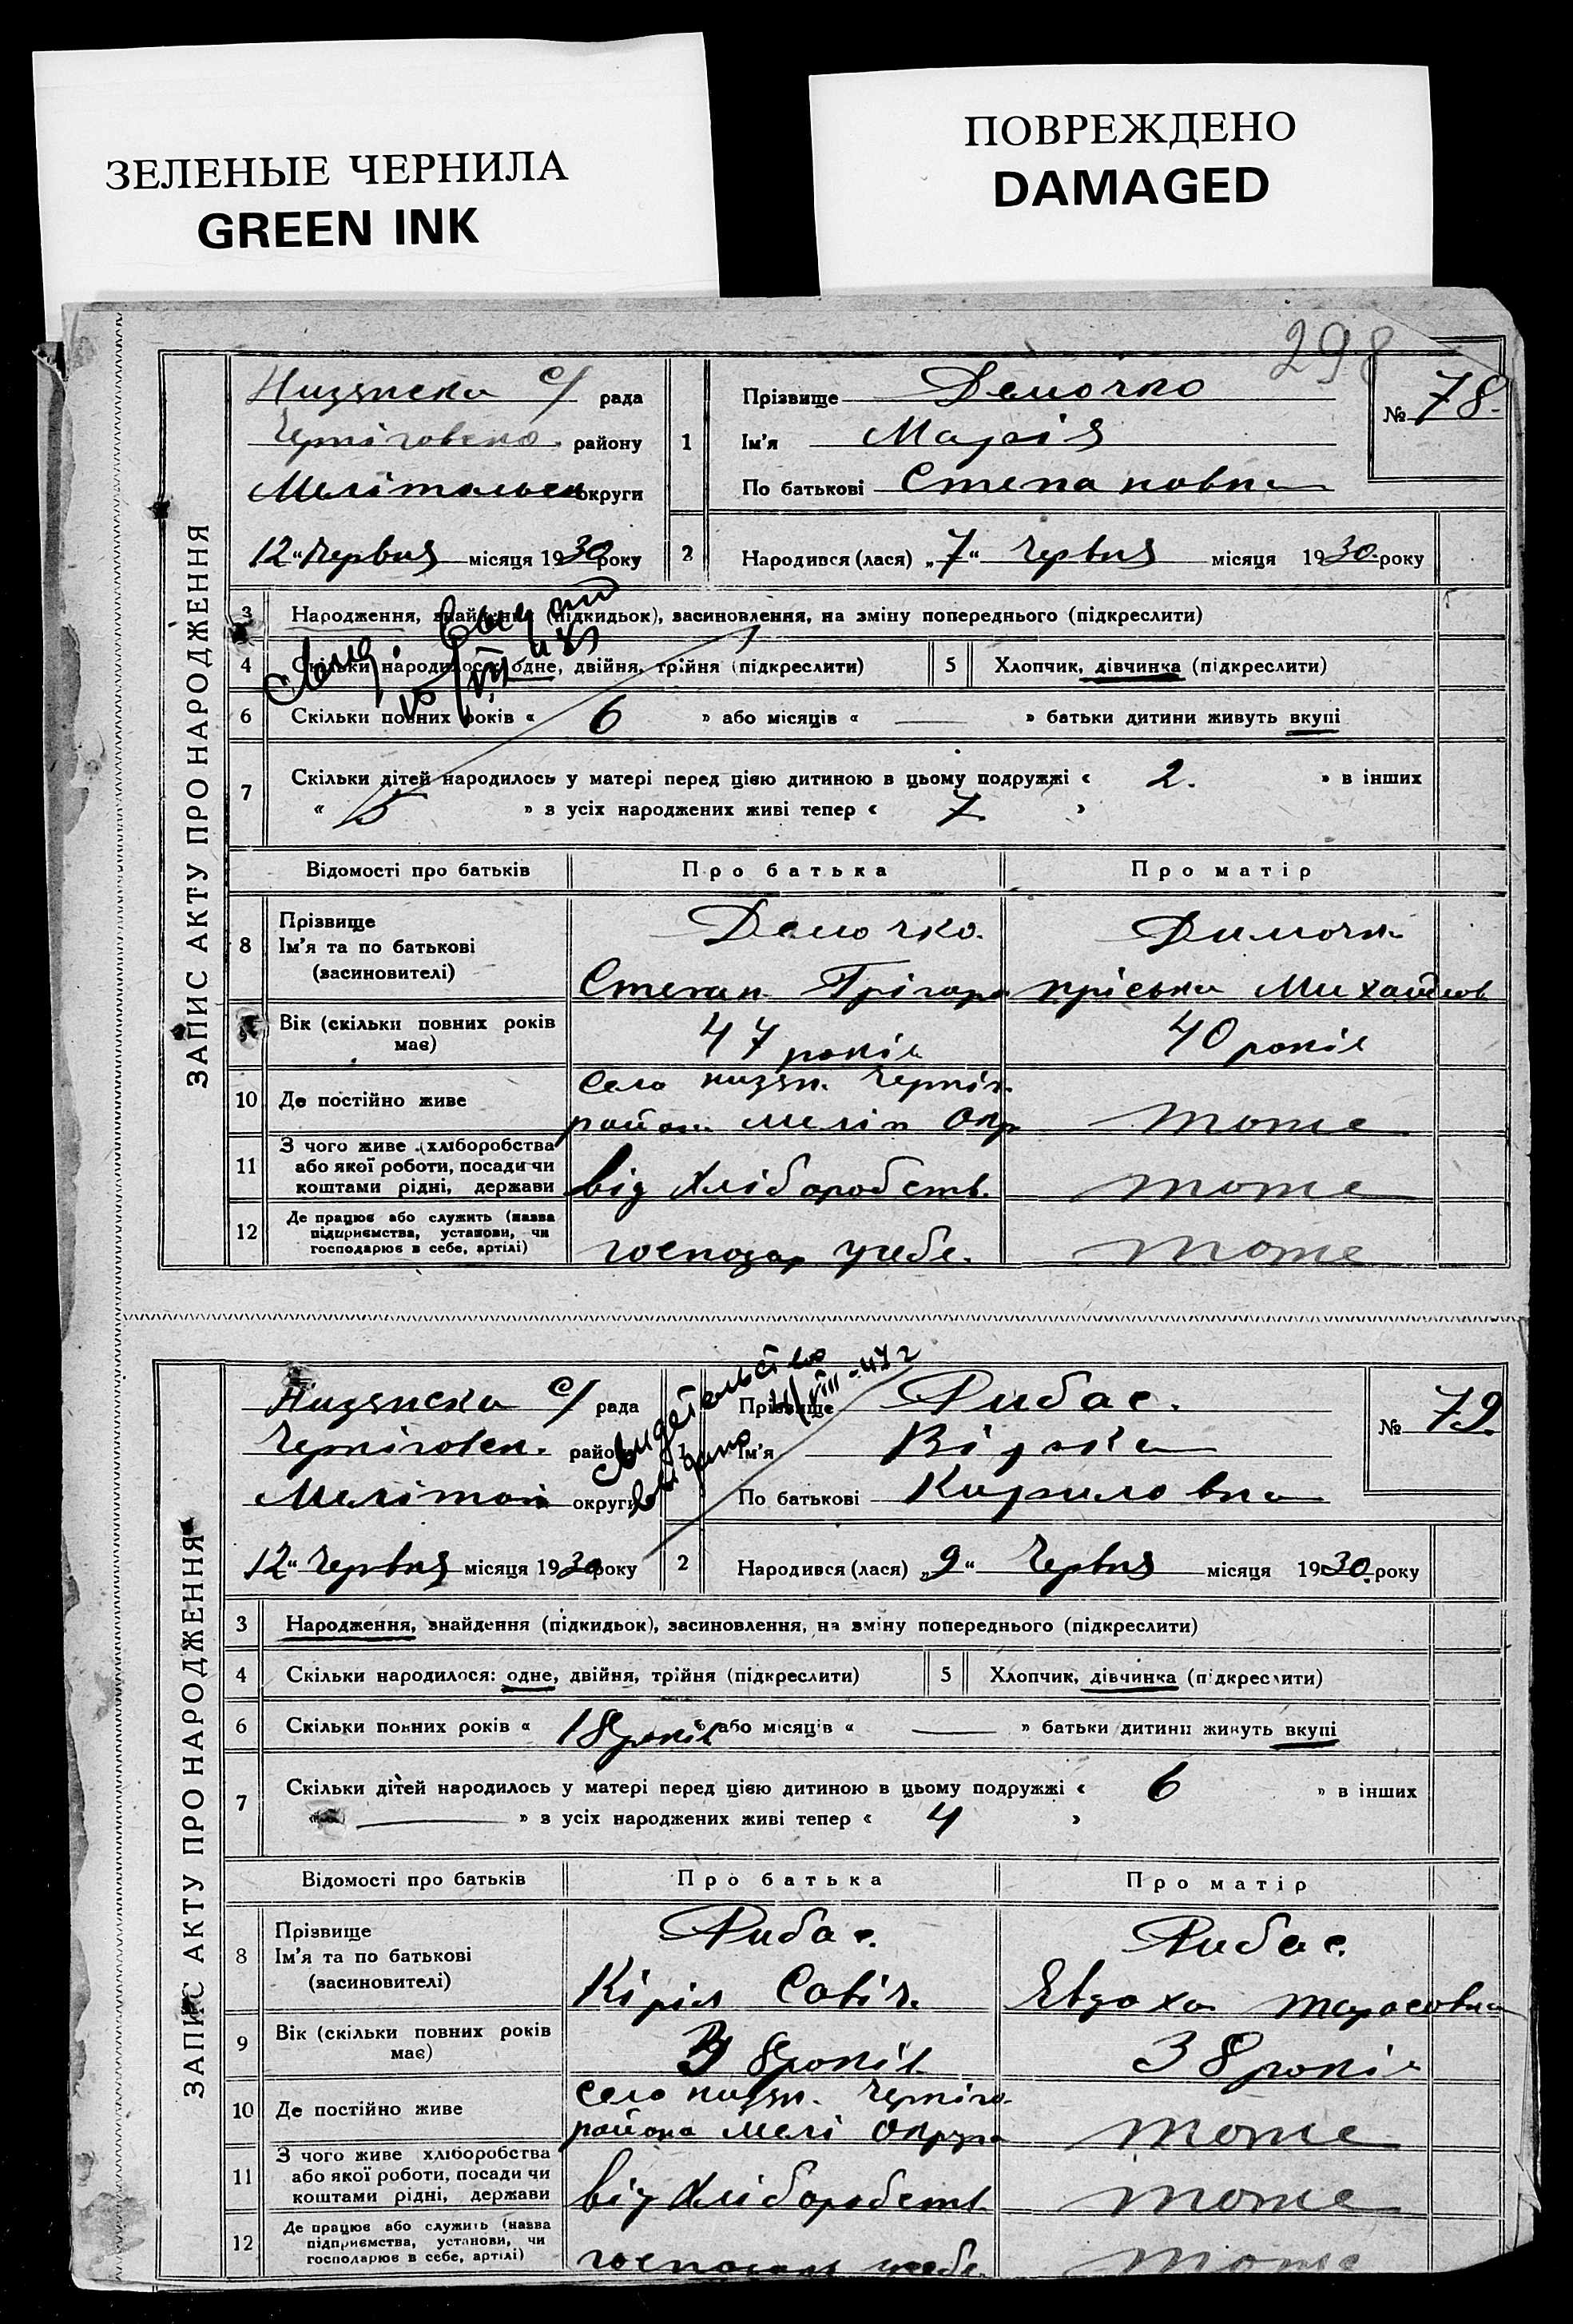 ЗЕЛЕНЫЕ ЧЕРНИЛА
GREEN INK
ПОВРЕЖДЕНО
DAMAGED
298
ЗАПИС АКТУ ПРО НАРОДЖЕННЯ
Низянска с/ рада
району
округи
12 "Червня місяця 1930 року
№ 78.
1 Прізвище Демочко
Ім'я Марія
По батькові Степановна
2 Народився (лася) „7" Червня місяця 1930 року
3 Народження, знайдення (підкидьок), засиновлення, на зміну попереднього (підкреслити)
4 Скільки народилося: одне, двійня, трійня (підкреслити)
5 Хлопчик, дівчинка (підкреслити)
6 Скільки повних років « 6 » або місяців « — » батьки дитини живуть вкупі
7 Скільки дітей народилось у матері перед цією дитиною в цьому подружжі « 2. » в інших
« 5 » з усіх народжених живі тепер « 7 »
Відомості про батьків Про батька Про матір
8 Прізвище
Ім'я та по батькові
(засиновителі)
Демочко.
Степан Грігоро
Димочк
пріська Михайлов
Вік (скільки повних років має)
47 років
40 років
10 Де постійно живе
село низян. Черніг.
район Меліт Окр
тоже
11 З чого живе (хліборобства
або якої роботи, посади чи
коштами рідні, держави
від хліборобств.
тоже
12 Де працює або служить (назва
підприємства, установи, чи
господарює в себе, артілі)
господар усебе.
тоже
ЗАПИС АКТУ ПРО НАРОДЖЕННЯ
Низянска с/ рада
Черніговск. району
Мелітоп округи
12 "Червня місяця 1930 року
Свидетельство
выдано
VIII-47 г
№ 79.
1 Прізвище Рибас.
Ім'я
По батькові Кириловна
2 Народився (лася) „9" Червня місяця 1930 року
3 Народження, знайдення (підкидьок), засиновлення, на зміну попереднього (підкреслити)
4 Скільки народилося: одне, двійня, трійня (підкреслити)
5 Хлопчик, дівчинка (підкреслити)
6 Скільки повних років « 18 років » або місяців « — » батьки дитини живуть вкупі
7 Скільки дітей народилось у матері перед цією дитиною в цьому подружжі « 6 » в інших
« — » з усіх народжених живі тепер « 4 »
Відомості про батьків Про батька Про матір
8 Прізвище
Ім'я та по батькові
(засиновителі)
Рибас.
Кіріл Савіч.
Рибас.
Євдоха тарасовна
9 Вік (скільки повних років має)
38 років
38 років
10 Де постійно живе
село низян. Черніго.
района Мелі Округа
тоже
11 З чого живе хліборобства
або якої роботи, посади чи
коштами рідні, держави
від хліборобств
тоже
12 Де працює або служить (назва
підприємства, установи, чи
господарює в себе, артілі)
господар усебе.
тоже